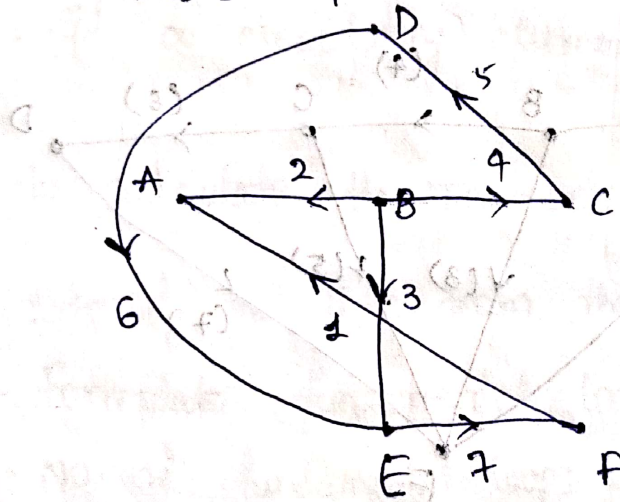 D
5
A 2 B 4 C
3
1
6
E 7 F